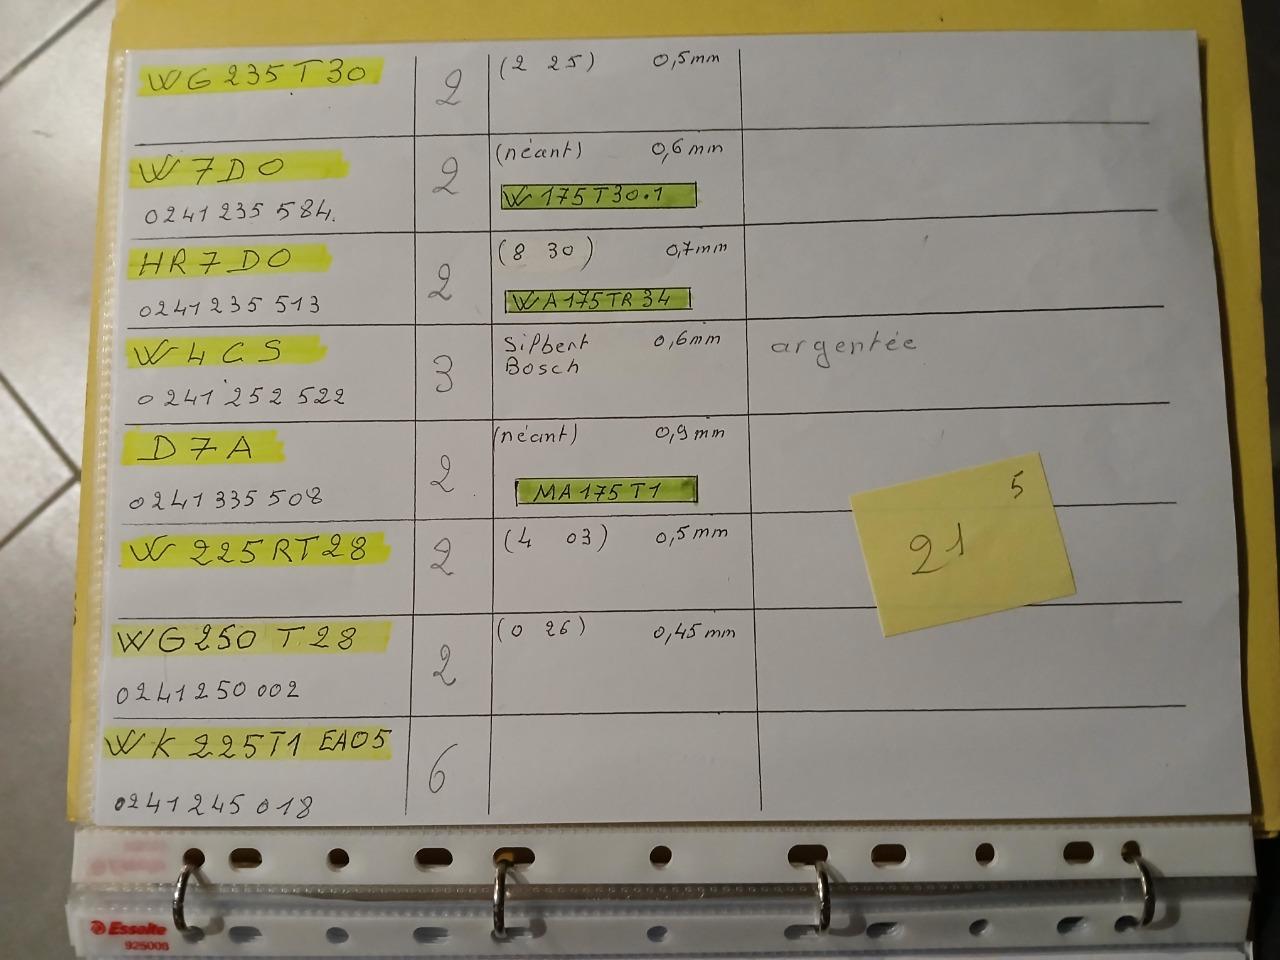 WG 235 T 30 2 (2 25) 0,5mm
W 7 D O 2 (néant) 0,6mm
0241 235 584. W 175 T 30.1
HR 7 D O 2 (8 30) 0,7mm
0241 235 513 WA 175 TR 34
W 4 C S 3 Silbert 0,6mm argentée
Bosch
0241 252 522
D 7 A 2 (néant) 0,9mm
0241 335 508 MA 175 T 1
W 225 RT 28 2 (4 03) 0,5mm
WG 250 T 28 2 (0 26) 0,45mm
0241 250 002
WK 225 T1 EA05 6
0241 245 018
5
21
Esselte
925008